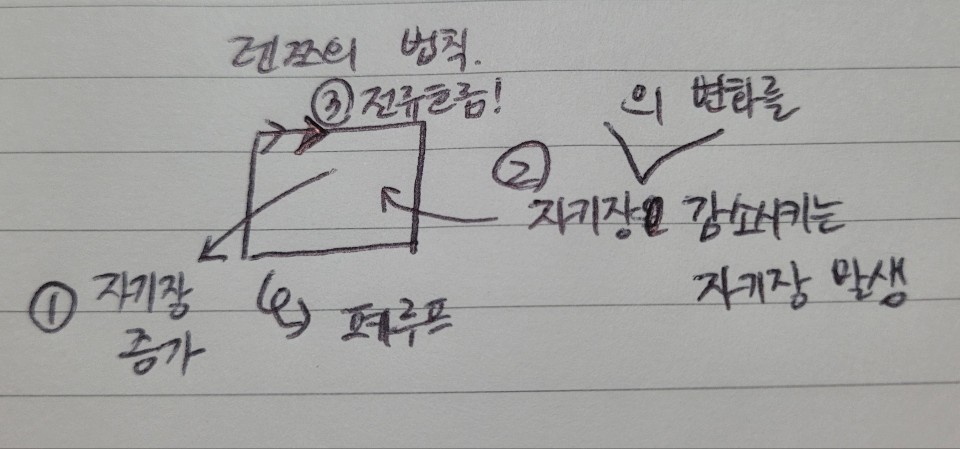 렌쯔의 법칙.
③ 전류흐름!
의 변화를
②
자기장 감소시키는
자기장 발생
① 자기장
증가
폐루프